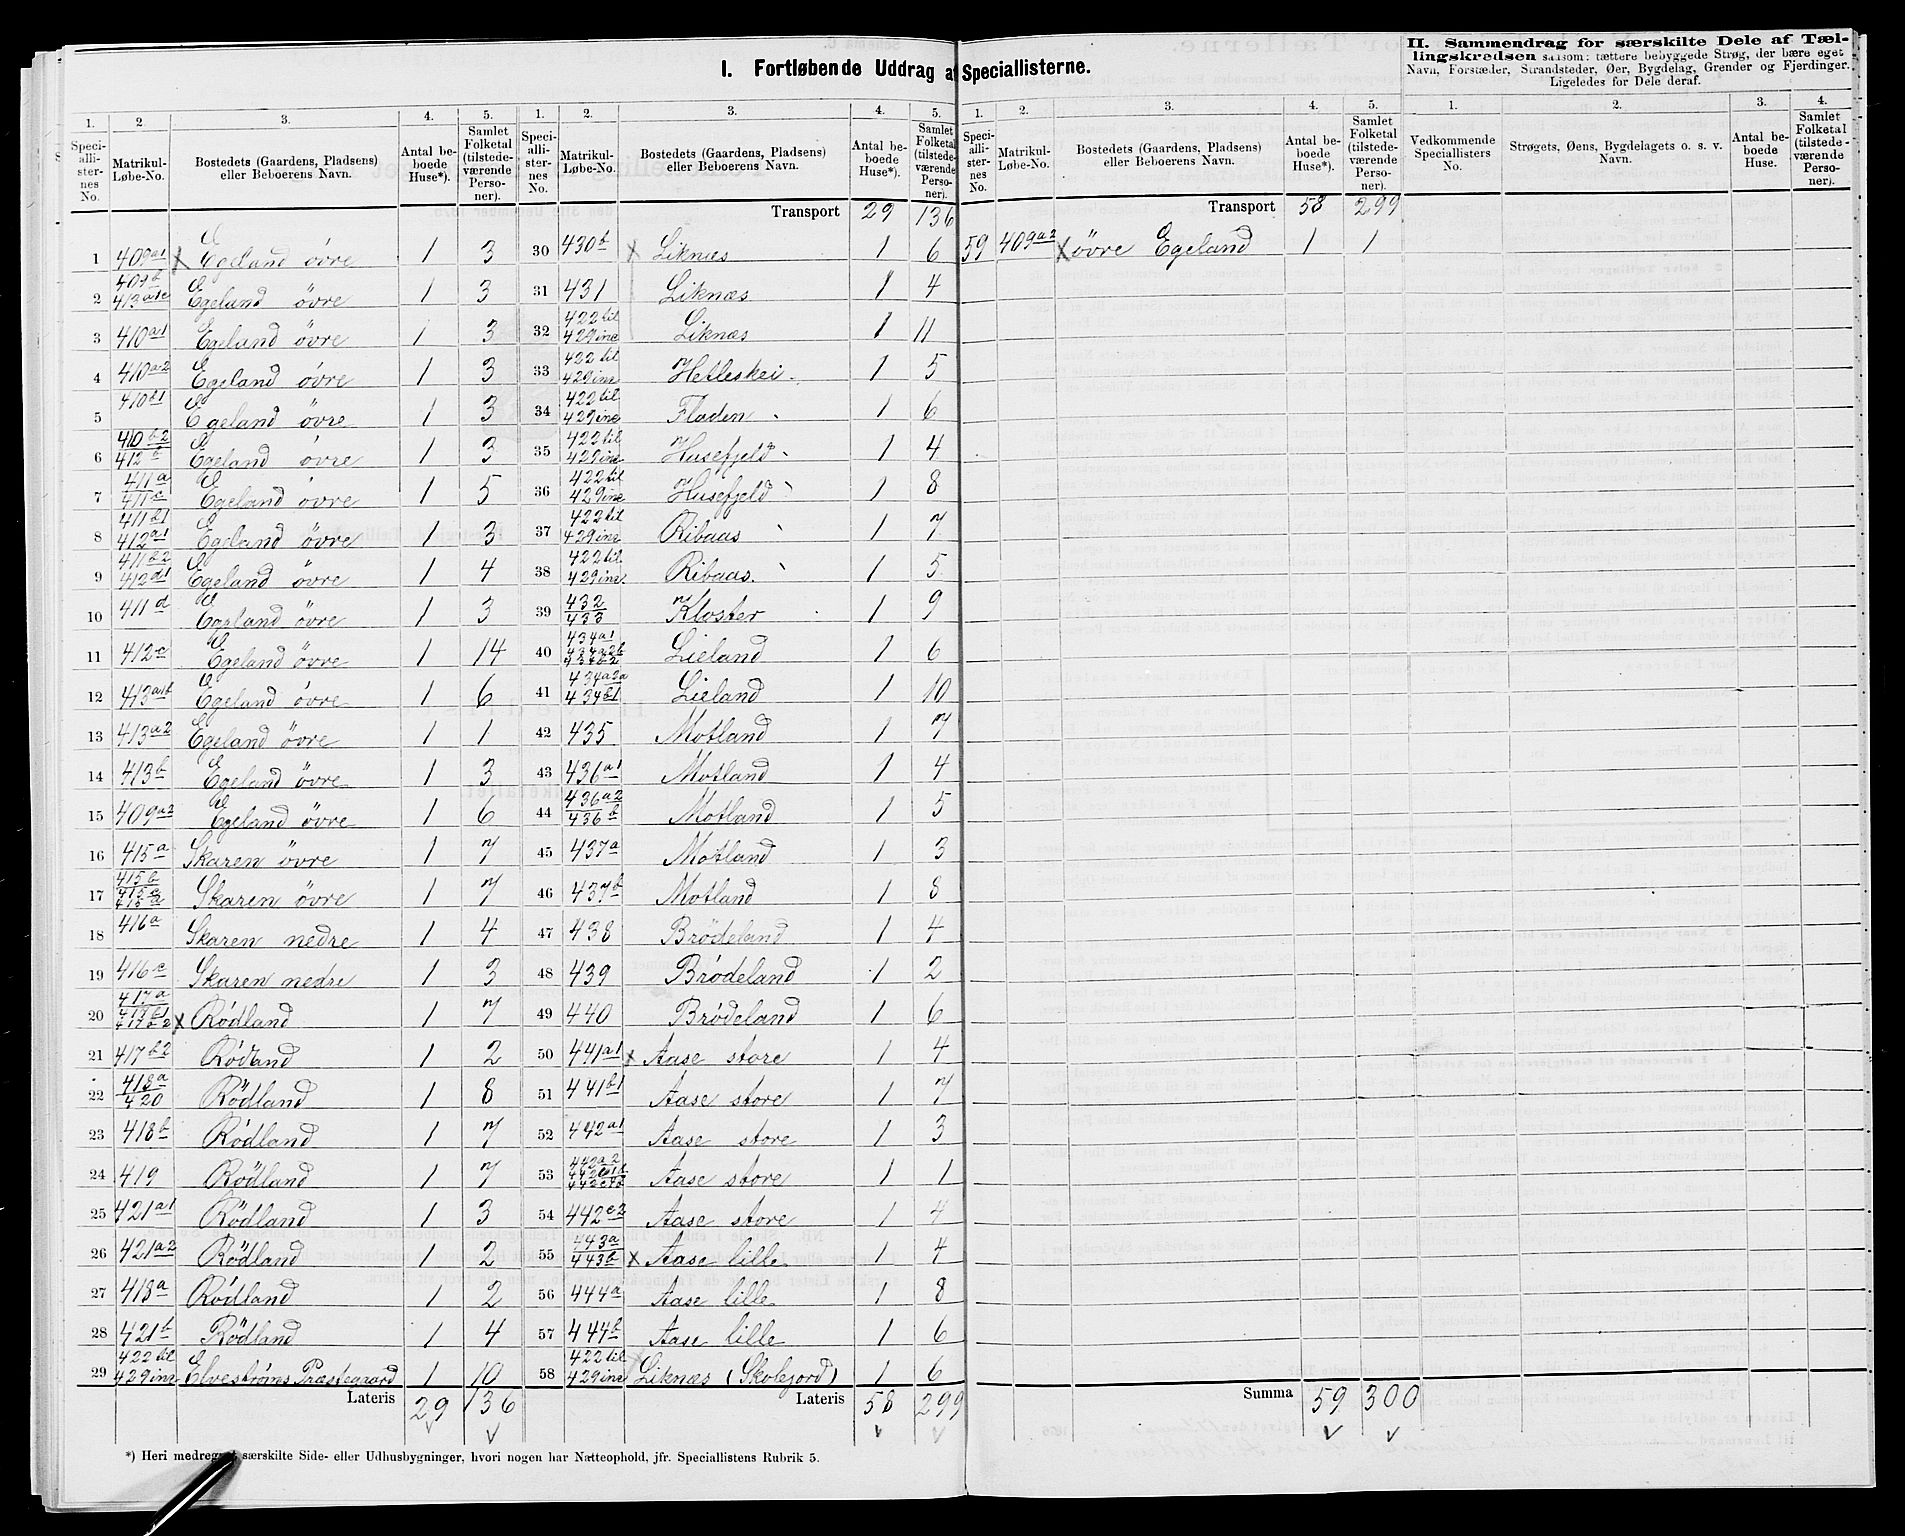 I. Fortløbende Uddrag af Speciallisterne.
II. Sammendrag for særskilte Dele af Tæl-
lingskredsen saasom: tættere bebyggede Strøg, der bære eget
Navn, Forstæder, Strandsteder, Øer, Bygdelag, Grender og Fjerdinger.
Ligeledes for Dele deraf.
1. 2. 3. 4. 5. 1. 2. 3. 4. 5. 1. 2. 3. 4. 5. 1. 2. 3. 4.
Speciallisternes No. Matrikul-Løbe-No. Bostedets (Gaardens, Pladsens) eller Beboerens Navn. Antal beboede Huse*). Samlet Folketal (tilstedeværende Personer).
Speciallisternes No. Matrikul-Løbe-No. Bostedets (Gaardens, Pladsens) eller Beboerens Navn. Antal beboede Huse*). Samlet Folketal (tilstedeværende Personer).
Speciallisternes No. Matrikul-Løbe-No. Bostedets (Gaardens, Pladsens) eller Beboerens Navn. Antal beboede Huse*). Samlet Folketal (tilstedeværende Personer).
Vedkommende Speciallisters No. Strøgets, Øens, Bygdelagets o. s. v. Navn. Antal beboede Huse. Samlet Folketal (tilstedeværende Personer).
1 409a1 x Egeland övre 1 3
2 409b 413a1c Egeland övre 1 3
3 410a1 Egeland övre 1 3
4 410a2 Egeland övre 1 3
5 410b1 Egeland övre 1 3
6 410b2 412b Egeland övre 1 3
7 411a 411c Egeland övre 1 5
8 411b1 412a1 Egeland övre 1 3
9 411b2 412d1 Egeland övre 1 4
10 411d Egeland övre 1 3
11 412c Egeland övre 1 14
12 413a1b Egeland övre 1 6
13 413a2 Egeland övre 1 1
14 413b Egeland övre 1 3
15 409a2 Egeland övre 1 6
16 415a Skaren övre 1 7
17 415b 415c Skaren övre 1 7
18 416a Skaren nedre 1 4
19 416c Skaren nedre 1 3
20 417a 417b1 x Rödland 1 7
21 417b2 Rödland 1 2
22 418a 420 Rödland 1 8
23 418b Rödland 1 7
24 419 Rödland 1 7
25 421a1 Rödland 1 3
26 421a2 Rödland 1 2
27 418a Rödland 1 2
28 421b Rödland 1 4
29 422 til 429 inc Elvestrøms Præstegaard 1 10
Lateris 29 136
Transport 29 136
30 430b x Liknæs 1 6
31 431 Liknæs 1 4
32 422 til 429 inc Liknæs 1 11
33 422 til 429 inc Helleskei 1 5
34 422 til 429 inc Fladen 1 6
35 422 til 429 inc Husefjeld 1 4
36 422 til 429 inc Husefjeld 1 8
37 422 til 429 inc Ribaas 1 7
38 422 til 429 inc Ribaas 1 5
39 432 433 Kloster 1 9
40 434a1 434a2b 434b2 Lieland 1 6
41 434a2a 434b1 Lieland 1 10
42 435 Motland 1 7
43 436a1 Motland 1 4
44 436a2 436b Motland 1 5
45 437a Motland 1 3
46 437b Motland 1 8
47 438 Brödeland 1 4
48 439 Brödeland 1 2
49 440 Brödeland 1 6
50 441a1 x Aase store 1 4
51 441b1 Aase store 1 7
52 442a1 Aase store 1 3
53 442a2 Aase store 1 1
54 442c2 Aase store 1 4
55 443a 443b x Aase lille 1 4
56 444a Aase lille 1 8
57 444b Aase lille 1 6
58 422 til 429 inc Liknæs (Skolejord) 1 6
Lateris 58 299
Transport 58 299
59 409a2 x övre Egeland 1 1
Summa 59 300
*) Heri medregnet særskilte Side- eller Udhusbygninger, hvori nogen har Natteophold, jfr. Speciallistens Rubrik 5.